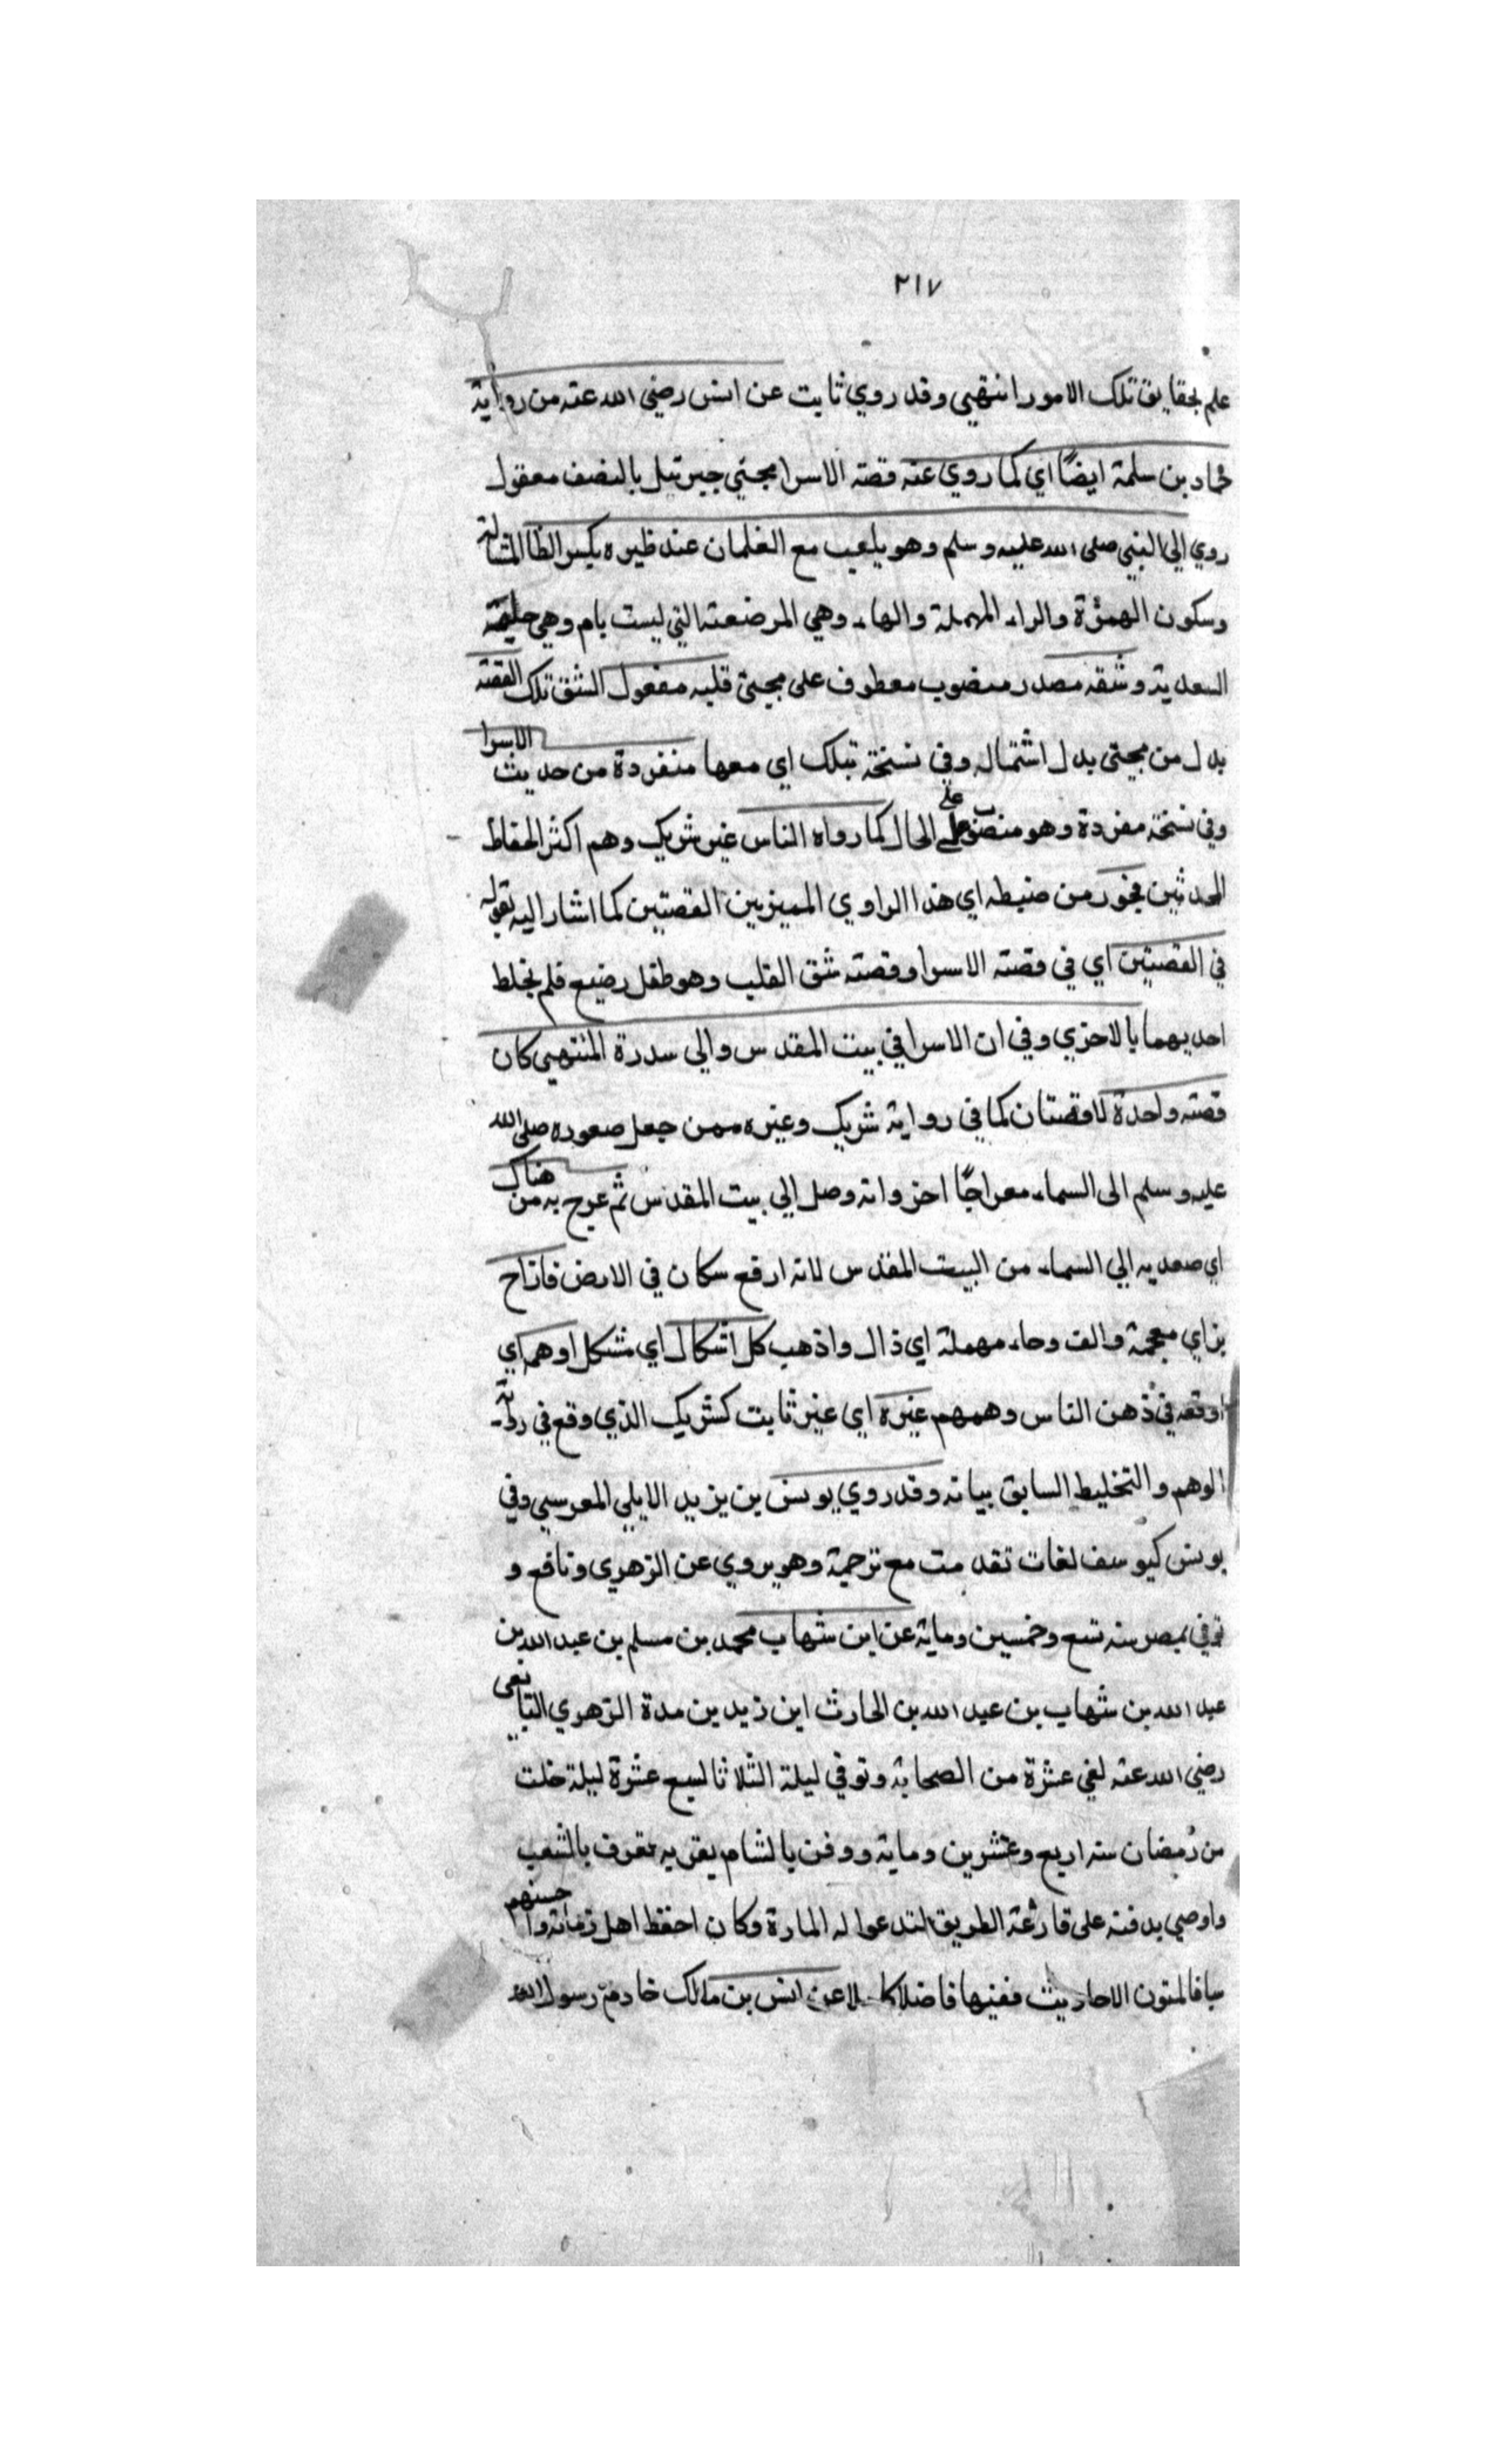 ٢١٧
علم بحقايق تلك الامور انتهي وقد روي ثابت عن انس رضي الله عنه من رواية
حماد بن سلمة ايضًا اي كما روي عنه قصة الاسرا مجئي جبرئيل بالنصف معقول
روي الي النبي صلى الله عليه وسلم وهو يلعب مع الغلمان عند ظيره بكسر الظا المشالة
وسكون الهمزة والراء المهملة والهاء وهي المرضعة التي ليست بام وهي حليمة
السعدية وشقه مصدر منصوب معطوف على مجيئ قلبه مفعول الشق تلك القصة
بدل من مجيئ بدل اشتمال وفي نسخة تبلك اي معها منفردة من حديث الاسرا
وفي نسخة مفردة وهو منصوب على الحال كما رواه الناس غير شريك وهم اكثر الحفاظ
المحدثين فجور من ضبطه اي هذا الراوي المميزين القصتين كما اشار اليه بقوله
في القصتين اي في قصة الاسرا وقصة شق القلب وهو طفل رضيع فلم يخلط
احديهما بالاخري وفي ان الاسرا في بيت المقدس والي سدرة المنتهي كان
قصة واحدة لا قصتان كما في رواية شريك وغيره ممن جعل صعوده صلى الله
عليه وسلم الى السماء معراجًا اخر وانه وصل الي بيت المقدس ثم عرج به من هناك
اي صعد به الي السماء من البيت المقدس لانه ارفع سكان في الارض فازاح
بزاي معجمة والف وحاء مهملة اي ذال واذهب كل اشكال اي مشكل اوهم اي
اوقعه في ذهن الناس وهمهم غيره اي غير ثابت كشريك الذي وقع في روايته
الوهم والتخليط السابق بيانه وقد روي يونس بن يزيد الايلي المعرسي وفي
يونس كيوسف لغات تقدمت مع ترجمة وهو يروي عن الزهري ونافع و
توفي بمصر سنه تسع وخمسين وماية عن ابن شهاب محمد بن مسلم بن عبد الله بن
عبد الله بن شهاب بن عبد الله بن الحارث ابن زيد بن مدة الزهري التابعى
رضي الله عنه لغي عشرة من الصحابة وتوفي ليلة الثلاثا لسبع عشرة ليلة خلت
من رمضان سنه اربع وعشرين وماية ودفن بالشام بقربه عقوف بالشعب
واوصي بدفنه على قارعة الطريق لتدعوا له المارة وكان احفظ اهل زمانه واحسنهم
سياقا لمتون الاحاديث ففيها فاضلا كاملا عن انس بن مالك خادم رسول الله